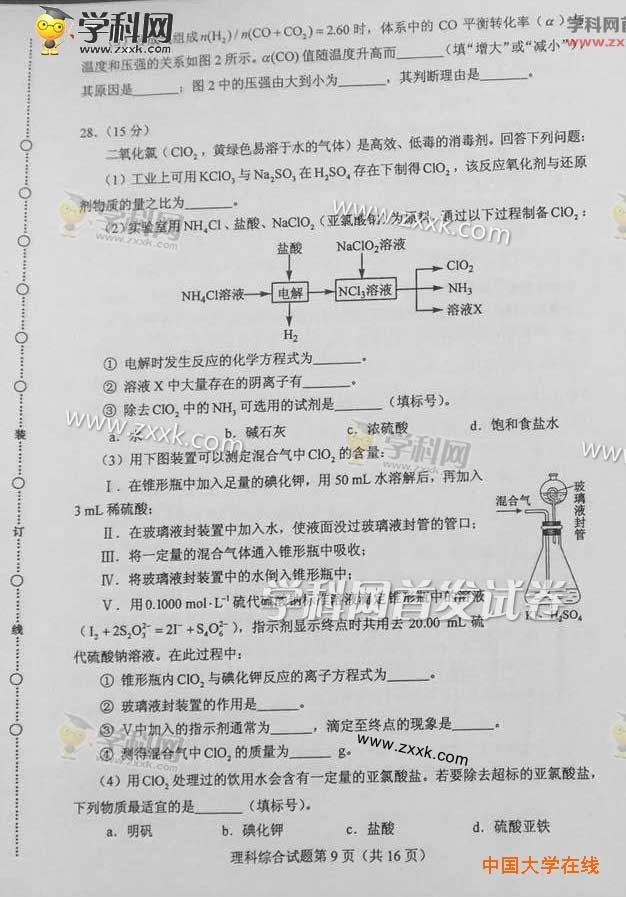 学科网
www.zxxk.com
学科网首
www.zxxk
组成n(H₂)/n(CO+CO₂)=2.60时,体系中的CO平衡转化率(α)与
温度和压强的关系如图2所示。α(CO)值随温度升高而______(填“增大”或“减小”),
其原因是______;图2中的压强由大到小为______,其判断理由是______。
28.(15分)
二氧化氯(ClO₂,黄绿色易溶于水的气体)是高效、低毒的消毒剂。回答下列问题:
(1)工业上可用KClO₃与Na₂SO₃在H₂SO₄存在下制得ClO₂,该反应氧化剂与还原
剂物质的量之比为______。
(2)实验室用NH₄Cl、盐酸、NaClO₂(亚氯酸钠)为原料,通过以下过程制备ClO₂:
学科网
www.zxxk.com
www.zxxk.com
盐酸
NaClO₂溶液
NH₄Cl溶液
电解
NCl₃溶液
ClO₂
NH₃
溶液X
H₂
① 电解时发生反应的化学方程式为______。
② 溶液X中大量存在的阴离子有______。
③ 除去ClO₂中的NH₃可选用的试剂是______(填标号)。
a.水 b.碱石灰 c.浓硫酸 d.饱和食盐水
www.zxxk.com
学科网
www.zxxk.com
(3)用下图装置可以测定混合气中ClO₂的含量:
Ⅰ.在锥形瓶中加入足量的碘化钾,用50 mL水溶解后,再加入
3 mL稀硫酸:
Ⅱ.在玻璃液封装置中加入水,使液面没过玻璃液封管的管口;
Ⅲ.将一定量的混合气体通入锥形瓶中吸收;
Ⅳ.将玻璃液封装置中的水倒入锥形瓶中;
Ⅴ.用0.1000 mol·L⁻¹硫代硫酸钠标准溶液滴定锥形瓶中的溶液
(I₂+2S₂O₃²⁻=2I⁻+S₄O₆²⁻),指示剂显示终点时共用去20.00 mL硫
代硫酸钠溶液。在此过程中:
混合气
玻璃液封管
H₂SO₄
学科网首发试卷
① 锥形瓶内ClO₂与碘化钾反应的离子方程式为______。
② 玻璃液封装置的作用是______。
③ Ⅴ中加入的指示剂通常为______,滴定至终点的现象是______。
④ 测得混合气中ClO₂的质量为______ g。
学科网
www.zxxk.com
www.zxxk.com
(4)用ClO₂处理过的饮用水会含有一定量的亚氯酸盐。若要除去超标的亚氯酸盐,
下列物质最适宜的是______(填标号)。
a.明矾 b.碘化钾 c.盐酸 d.硫酸亚铁
理科综合试题第9页(共16页)
中国大学在线
装
订
线